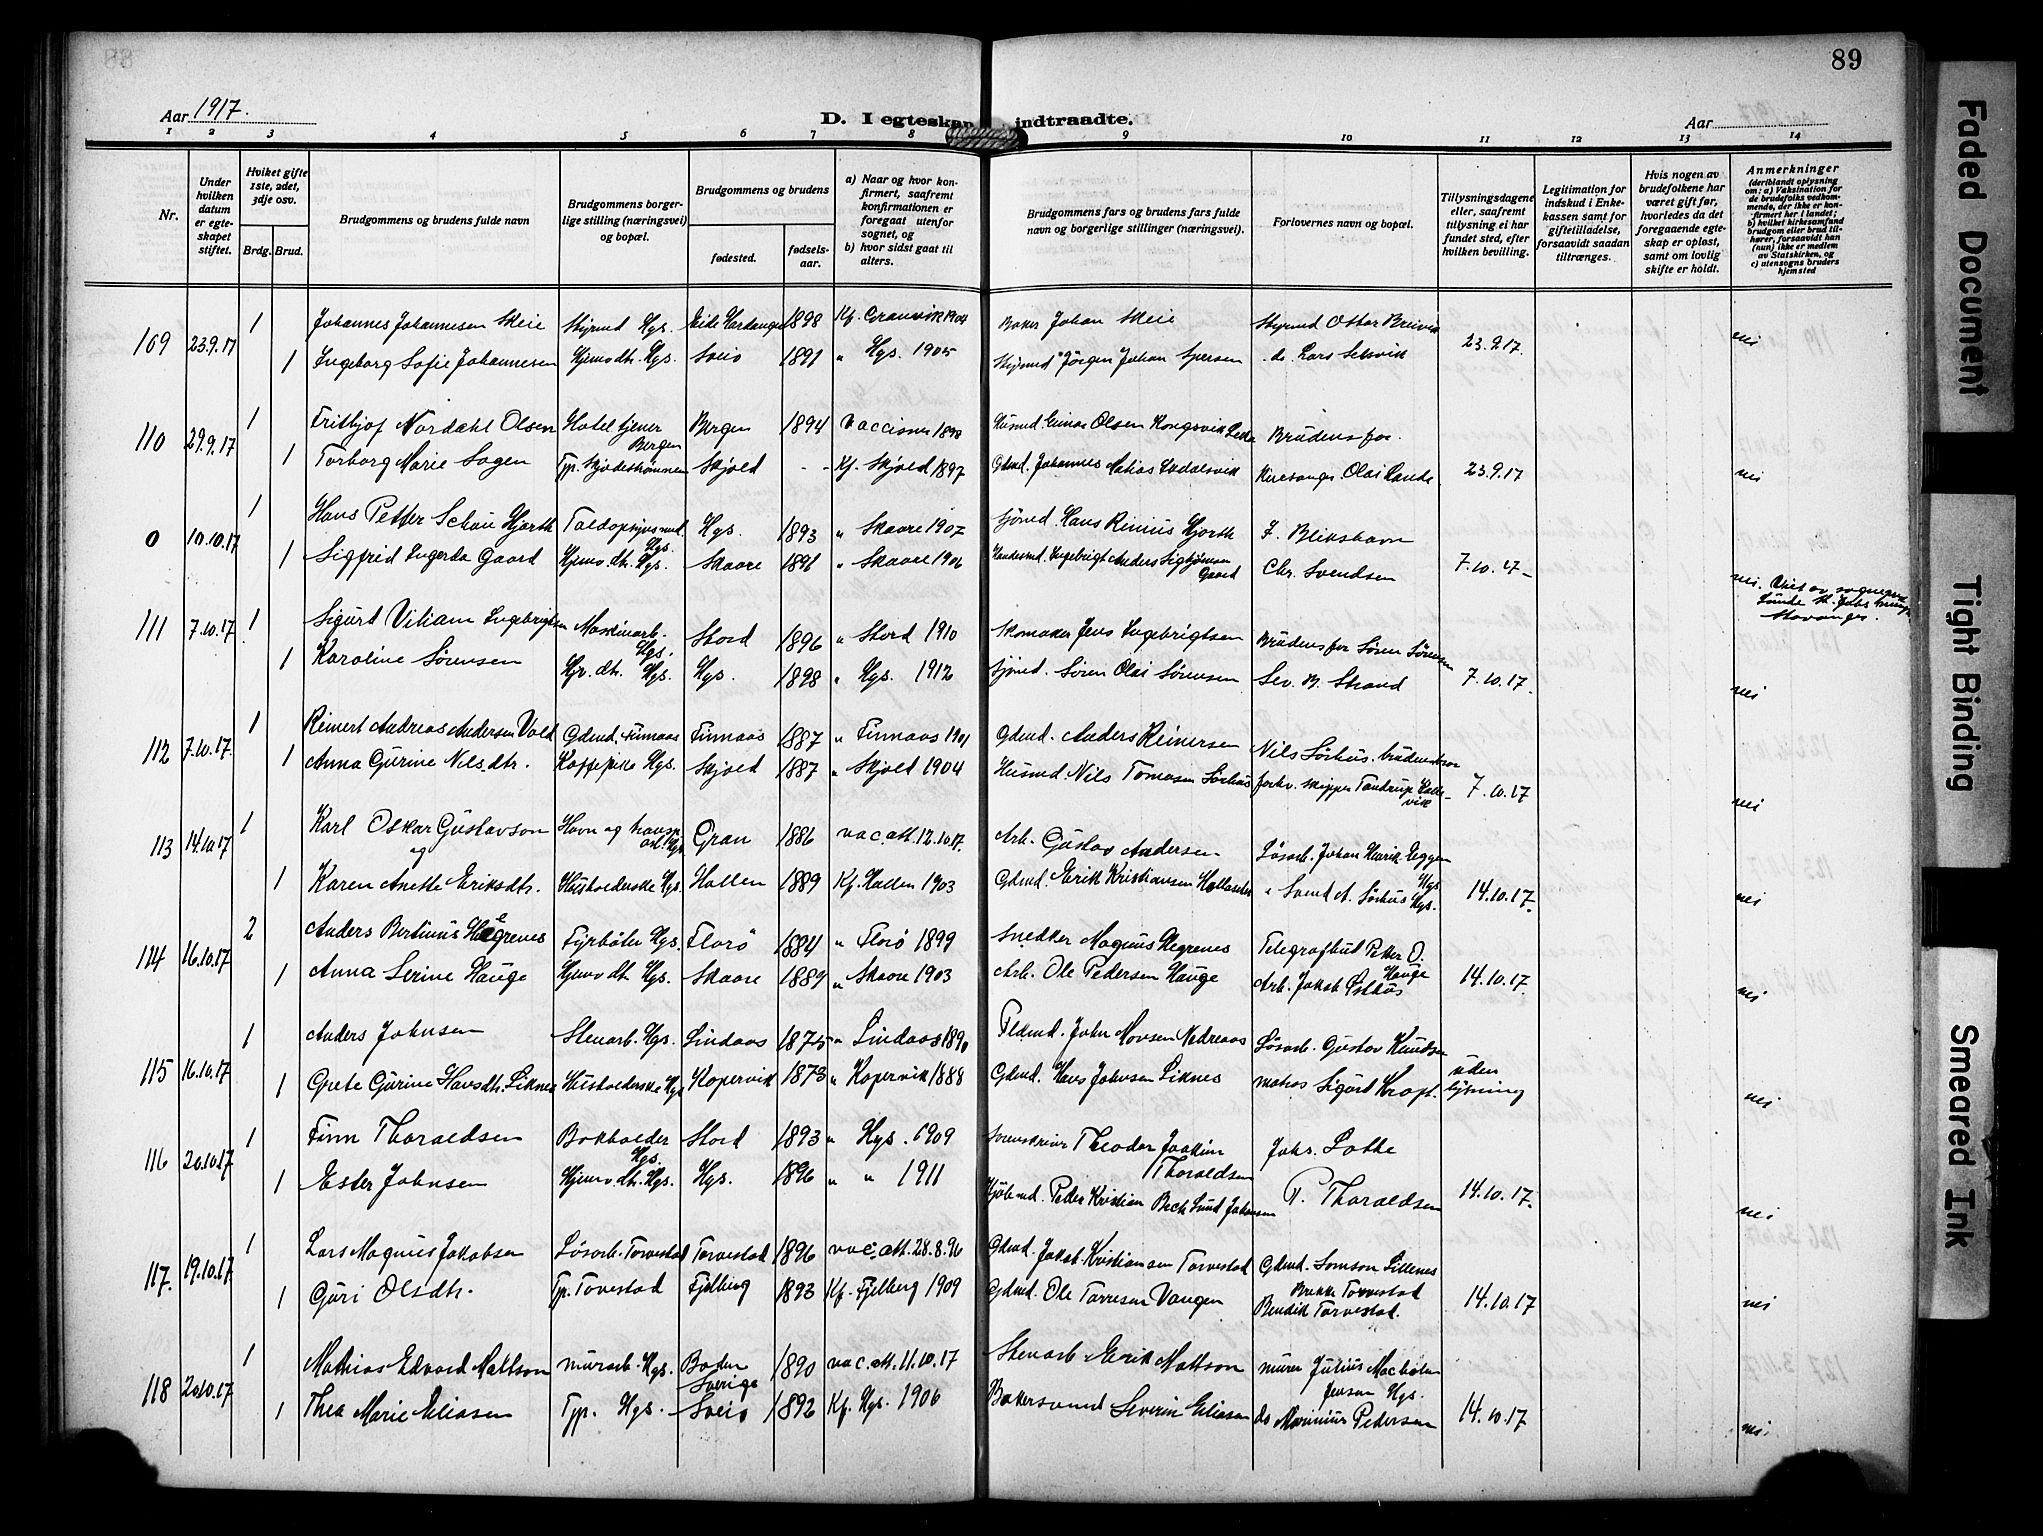 89
Aar 1917.
D. I egteskap indtraadte.
Aar
1 2 3 4 5 6 7 8 9 10 11 12 13 14
Nr.
Under hvilken datum er egteskapet stiftet.
Hvilket gifte 1ste, 2det, 3dje osv.
Brdg. Brud.
Brudgommens og brudens fulde navn
Brudgommens borgerlige stilling (næringsvei) og bopæl.
Brudgommens og brudens
fødested.
fødselsaar.
a) Naar og hvor konfirmert, saafremt konfirmationen er foregaat utenfor sognet, og
b) hvor sidst gaat til alters.
Brudgommens fars og brudens fars fulde navn og borgerlige stillinger (næringsvei).
Forlovernes navn og bopæl.
Tillysningsdagene eller, saafremt tillysning ei har fundet sted, efter hvilken bevilling.
Legitimation for indskud i Enkekassen samt for giftetilladelse, forsaavidt saadan tiltrænges.
Hvis nogen av brudefolkene har været gift før, hvorledes da det foregaaende egteskap er opløst, samt om lovlig skifte er holdt.
Anmerkninger
(deriblandt oplysning om: a) Vaksination for de brudefolks vedkommende, der ikke er konfirmert her i landet; b) hvilket kirkesamfund brudgom eller brud tilhører, forsaavidt han (nun) ikke er medlem av Statskirken, og c) utensogns bruders hjemsted
109 23.9.17 1 Johannes Johannesen Skeie Styrmd Hgs. Eide Hardanger 1898 Kf. Granvik 1904 Baker Johan Skeie Styrmd Ottar Breivik
1 Ingeborg Sofie Johannesen Hjemv. dtr. Hgs. Sveio 1891 " Hgs. 1905 Skipsmd Jørgen Johan Iversen do. Lars Selsvik 23.9.17. nei
110 29.9.17 1 Frithjof Nordahl Olsen Hotel tjener Bergen Bergen 1894 Vaccinert 1898 Husmd. Gunar Olsen Kongsvik Brudens far.
1 Torborg Marie Sagen Tp. Skjoldestrømmen Skjold - - Kf. Skjold 1897 Gdmd. Johannes Matias Kirkesanger Olai Lande 23.9.17 nei
0 10.10.17 1 Hans Petter Schou Hjorth Toldopsynsmd Hgs. Hgs. 1893 " Skaare 1907 Sjømd. Hans Rinius Hjorth F. Blikshavn
1 Sigfrid Ingerda Gaard Hjemv. dtr. Hgs. Skaare 1896 " Skaare 1906 Handelsmd. Ingebrigt Anders Sigbjørnsen Gaard Chr. Svendsen 7.10.17- nei. Viet av sognepr. Stavanger.
111 7.10.17 1 Sigurd Viliam Ingebrigtsen Maskinarb. Hgs. Stord 1896 " Stord 1910 Skomaker Jens Ingebrigtsen Brudens far Søren Sørensen
1 Karoline Sørensen Hjv. dtr. Hgs. Hgs. 1898 " Hgs. 1912 Sjømd. Søren Olai Sørensen Sev. B. Strand 7.10.17. nei
112 7.10.17. 1 Reinert Andreas Andersen Vold Gdmd. Finnaas Finnaas 1887 " Finnaas 1901 Gdmd. Anders Reinersen Nils Sørhus. brudens bror
1 Anna Gurine Nilsdtr. Kaffepike Hgs. Skjold 1887 " Skjold 1904 Husmd. Nils Tomasen Sørhus forhv. skipper Tandrup 7.10.17 nei
113 14.10.17 1 Karl Oskar Gustavson Havn og transp. arb. Hgs Gran 1886 vac. att. 12.10.17. Arb. Gustav Andersen Løsarb. Johan Henrik Eggen Hgs
og
1 Karen Anette Eriksdtr. Husholderske Hgs. Hallen 1889 Kf. Hallen 1903 Gdmd. Erik Kristiansen " Svend A. Sørhus Hgs. 14.10.17. nei
114 16.10.17 2 Anders Bertinus Hegrenes Fyrbøter Hgs. Florø 1884 " Florø 1899 Snedker Magnus Hegrenes Telegrafbud Petter O. Hauge
1 Anna Serine Hauge Hjemv. dtr. Hgs. Skaare 1889 " Skaare 1903 Arb. Ole Pedersen Hauge Arb. Jakob Østhus 14.10.17. nei
115 16.10.17 1 Anders Johnsen Stenarb. Hgs. Lindaas 1875 " Lindaas 1890 Pldmd. John Monsen Nedreaas Løsarb. Gustav Knudsen
1 Grete Gurine Hansdtr. Liknes Husholderske Hgs Kopervik 1873 " Kopervik 1888 Gdmd. Hans Johnsen Liknes matros Sigurd Kropt. uden lysning nei
116 20.10.17 1 Finn Thoraldsen Bokholder Hgs. Stord 1893 " Hgs. 1909 Sorenskriver Theodor Joakim Thoraldsen Johs. Lothe
1 Ester Johnsen Hjemv. dtr. Hgs. Hgs. 1896 " " 1911 Kjøbmd. Peder Kristian Bech Lund Johnsen P. Thoraldsen 14.10.17. nei
117. 19.10.17 1 Lars Magnus Jakobsen Løsarb. Torvestad Torvestad 1896 vac. att. 28.8.96 Gdmd. Jakob Kristiansen Torvestad Gdmd. Samson Lillenes Bakke Torvestad
1 Guri Olsdtr. Tp. Torvestad Fjelberg 1893 Kf. Fjelberg 1909 Gdmd. Ole Torresen Vangen Bendik Torvestad. 14.10.17 nei
118 20.10.17 1 Mathias Edvard Mattson murarb. Hgs. Boden Sverige 1890 vac. att. 11.10.17 Stenarb. Erik Mattson murer Julius Jensen Hgs.
1 Thea Marie Eliasen Tp. Hgs. Sveio 1892 Kf. Hgs. 1906 Bakersvend Severin Eliasen do Marinius Pedersen 14.10.17 nei
Faded Document
Tight Binding
Smeared Ink